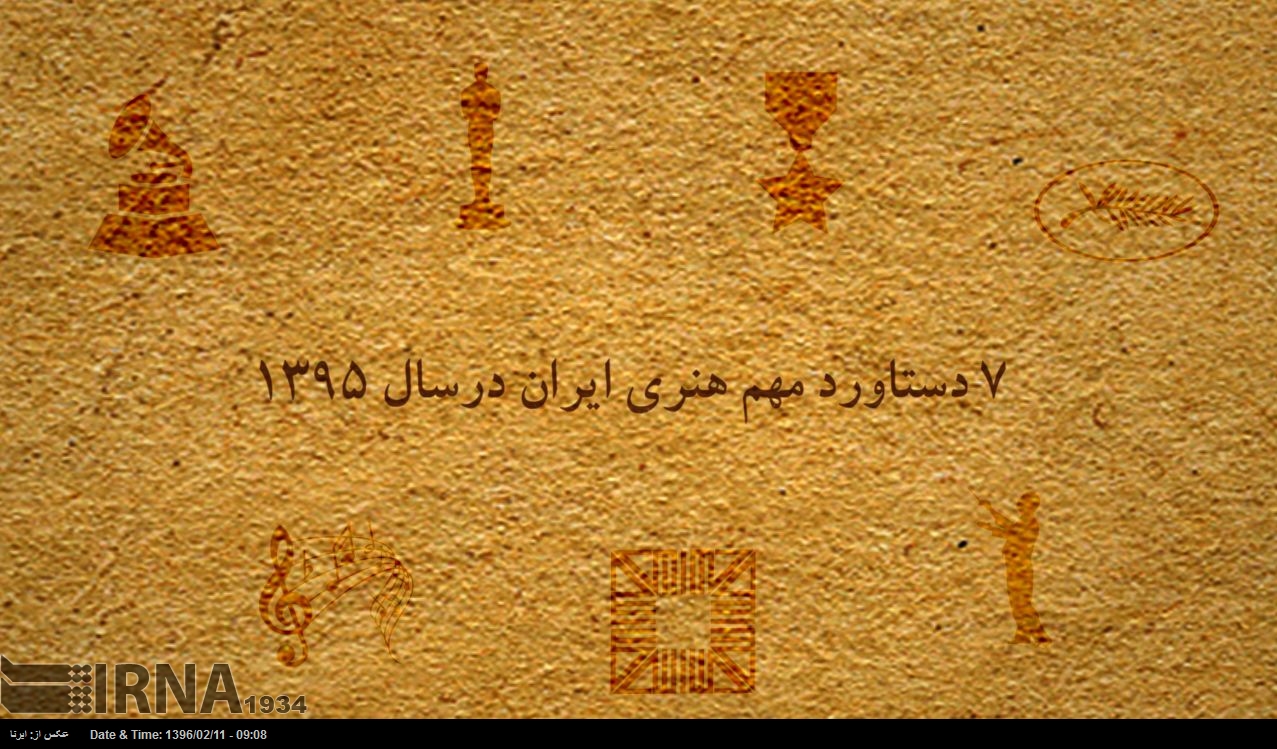 ۷ دستاورد مهم هنری ایران درسال ۱۳۹۵
IRNA 1934
عکس از: ایرنا Date & Time: 1396/02/11 - 09:08